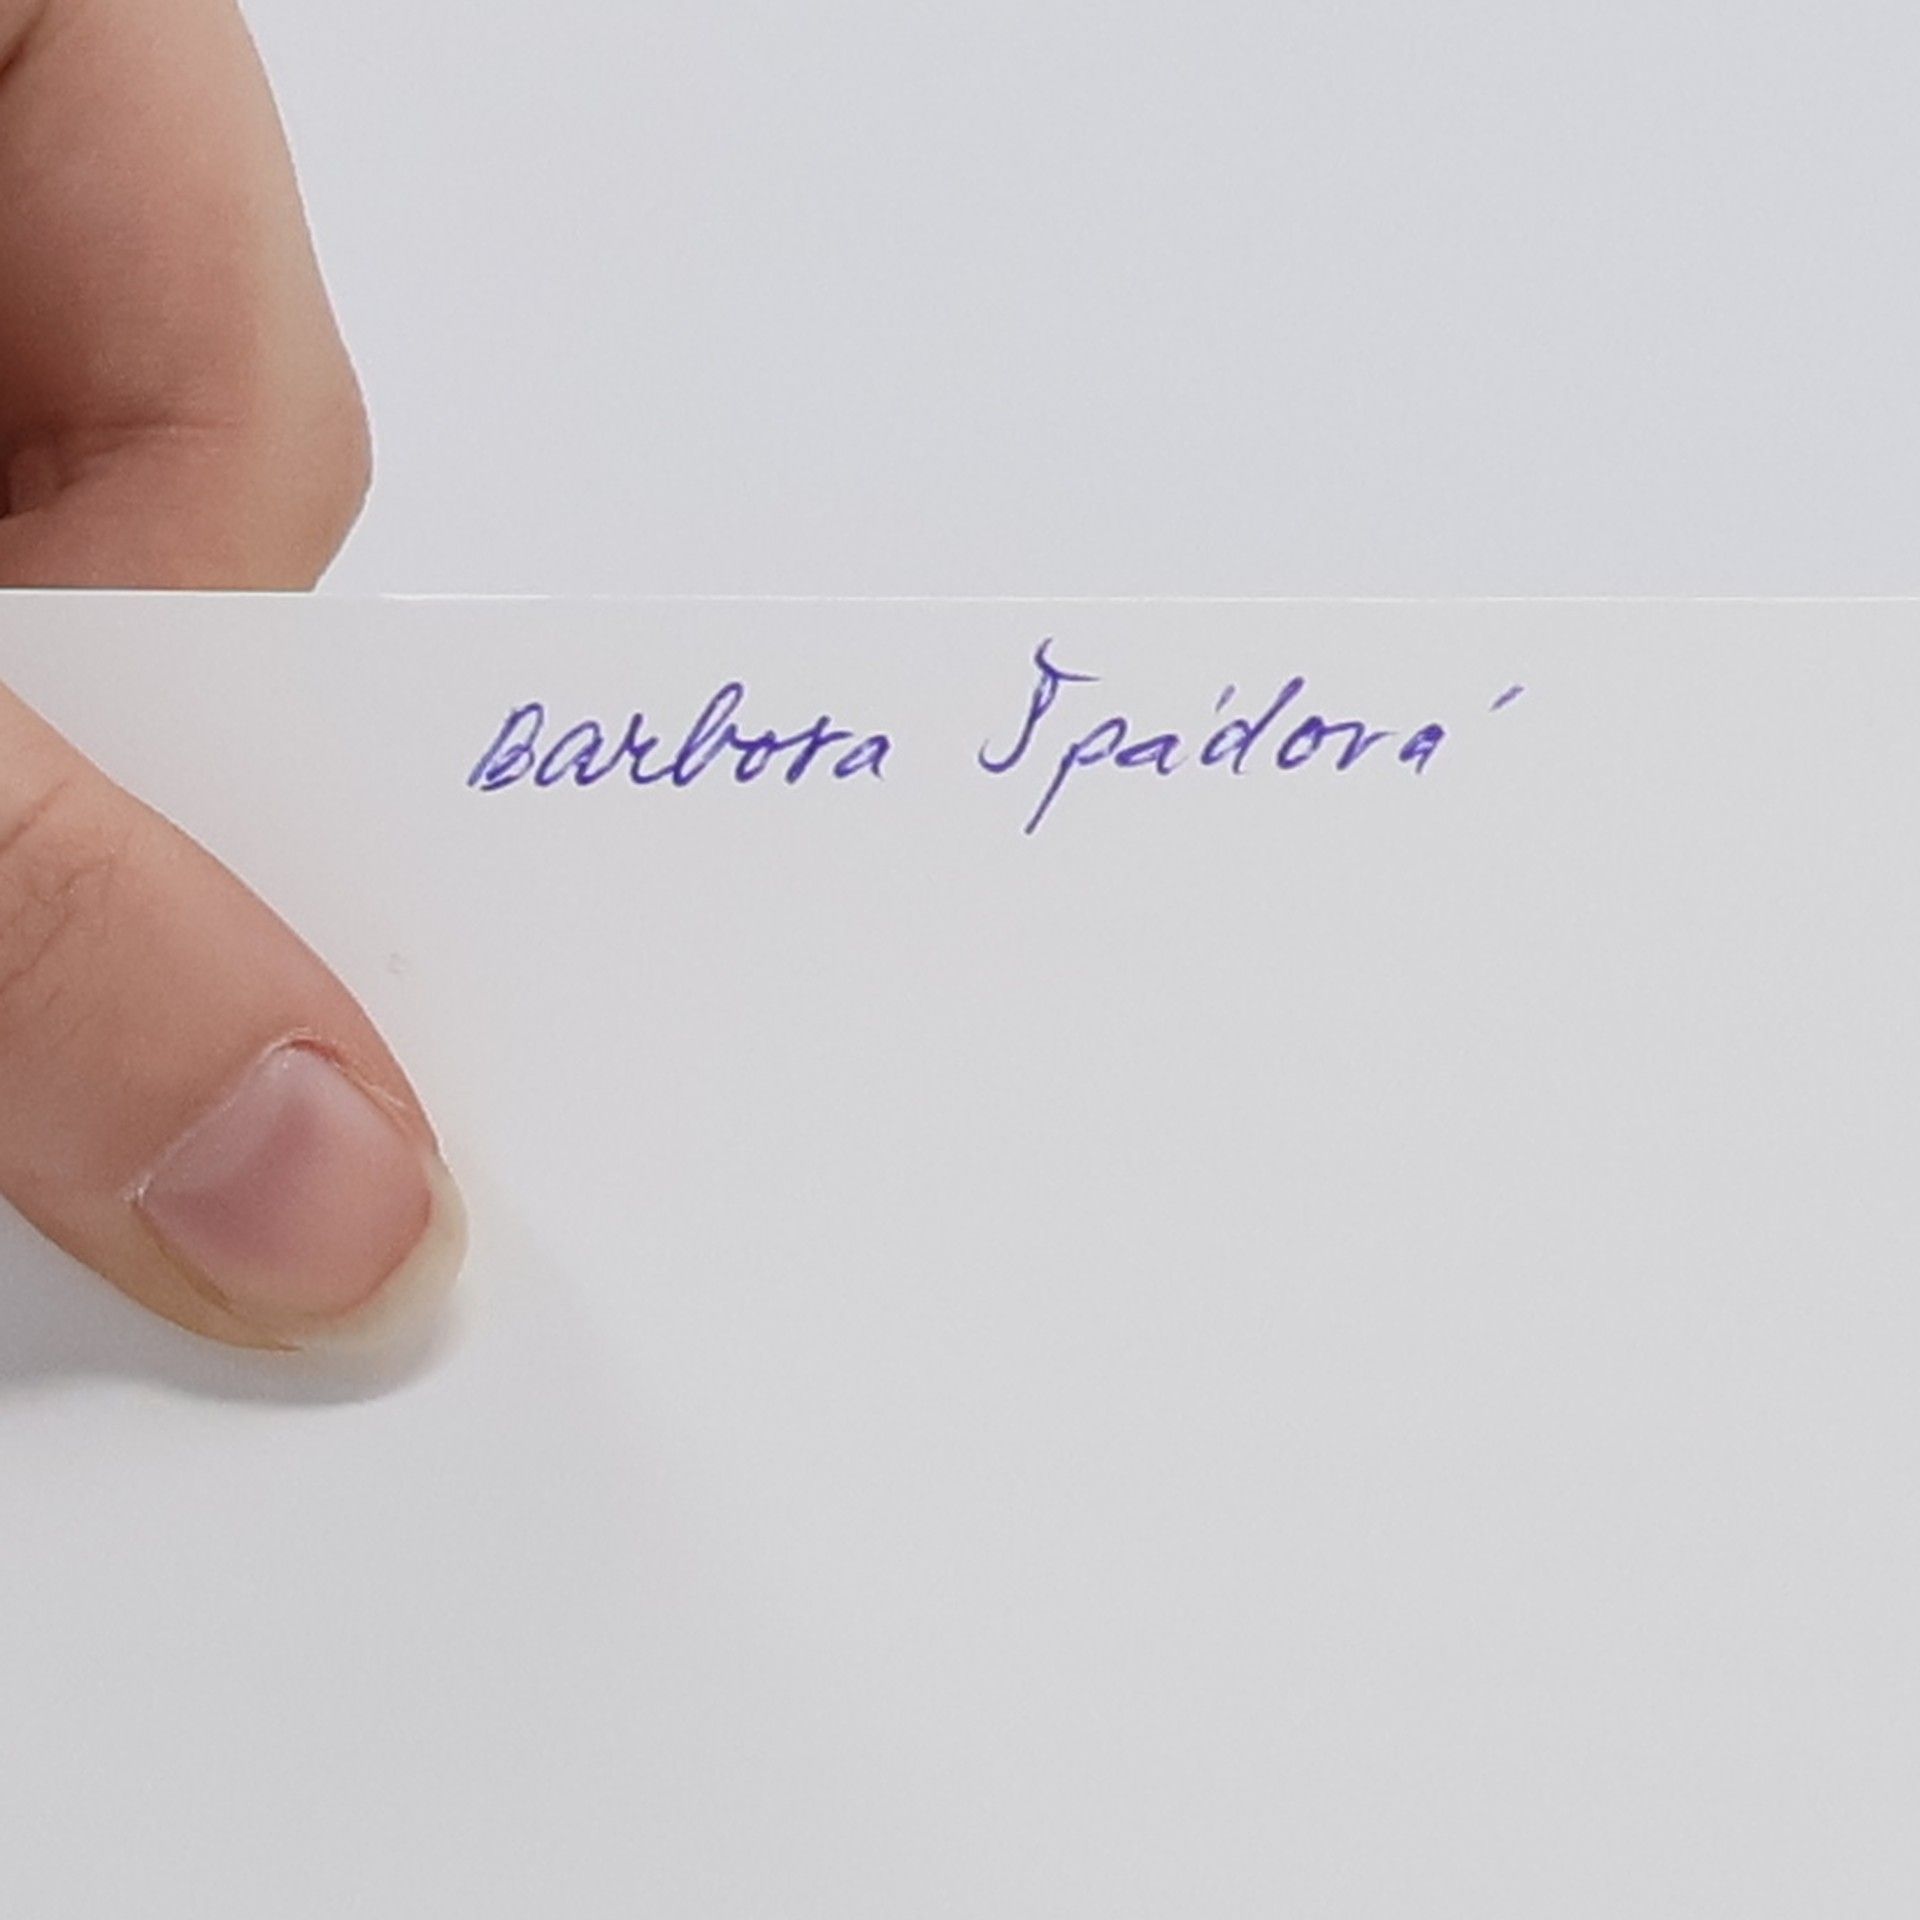 Barbora Špádová